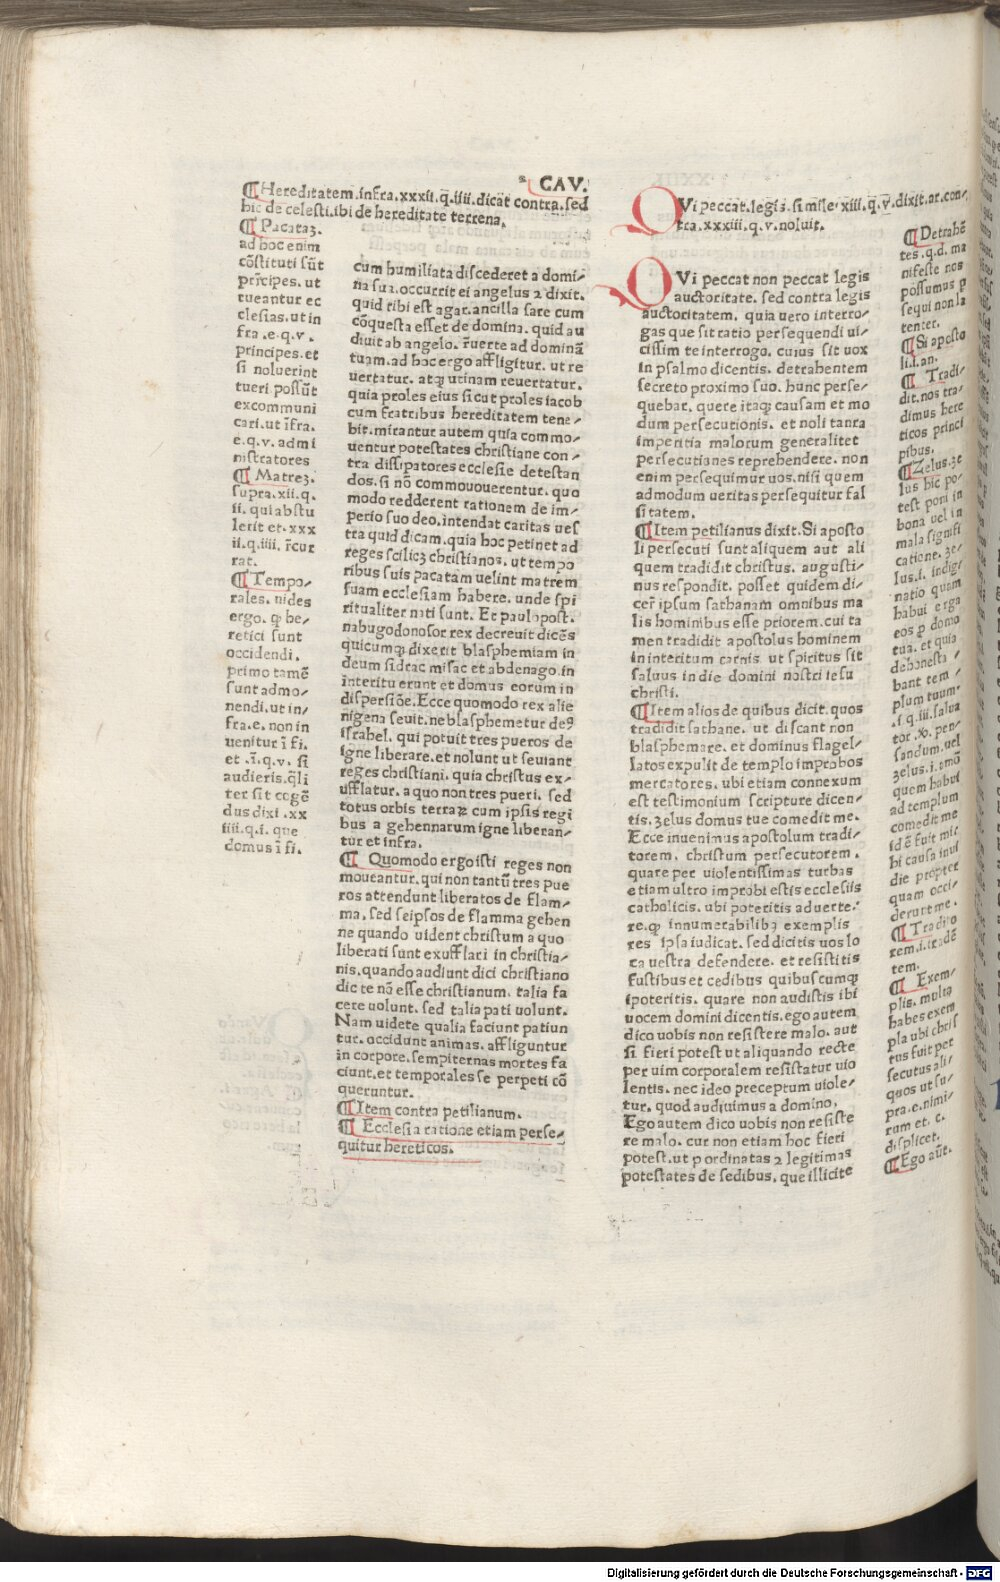 CAV.
¶ Hereditatem.infra.xxxii.q̃.iiii.dicat contra.sed
hic de celesti.ibi de hereditate terrena.
¶ Pacataꝫ.
ad hoc enim
cõstituti sũt
prĩcipes. ut
tueantur ec
clesias.ut in
fra .e.q.v.
principes.et
si noluerint
tueri possũt
excommuni
cari.ut ĩfra.
e.q.v. admi
nistratores
¶ Matreꝫ.
supra.xii.q.
ii. qui abstu
lerit et.xxx
ii.q.iiii. r̃cur
rat.
¶ Tempo/
rales. uides
ergo. ꝙ he/
retici sunt
occidendi.
primo tamẽ
sunt admo/
nendi.ut in/
fra.e. non in
uenitur ĩ fi.
et .ĩ.q.v. si
audieris.q̃li
ter sit cogẽ
dus dixi .xx
iiii.q.i. que
domus ĩ fi.
cum humiliata discederet a domi/
na sua.occurrit ei angelus ⁊ dixit.
quid tibi est agar.ancilla sare cum
cõquesta esset de domina. quid au
diuit ab angelo. r̃uerte ad dominã
tuam.ad hoc ergo affligitur. ut re
uertatur. atqꝫ utinam reuertatur.
quia proles eius sicut proles iacob
cum fratribus hereditatem tene/
bit.mirantur autem quia commo/
uentur potestates christiane con/
tra dissipatores ecclesie detestan
dos.si nõ commououerentur. quo
modo redderent rationem de im/
perio suo deo.intendat caritas ues
tra quid dicam.quia hoc petinet ad
reges scilicꝫ christianos. ut tempo
ribus suis pacatam uelint matrem
suam ecclesiam habere. unde spi
ritualiter nati sunt. Et paulopost.
nabugodonosor rex decreuit dicẽs
quicumqꝫ dixerit blasphemiam in
deum sidrac misac et abdenago.in
interitu erunt et domus eorum in
dispersiõe.Ecce quomodo rex alie
nigena seuit.ne blasphemetur deꝰ
israhel. qui potuit tres pueros de
igne liberare.et nolunt ut seuiant
reges christiani. quia christus ex/
ufflatur. a quo non tres pueri. sed
totus orbis terraꝝ cum ipsis regi
bus a gehennarum igne liberan/
tur et infra.
¶ Quomodo ergo isti reges non
moueantur.qui non tantũ tres pue
ros attendunt liberatos de flam/
ma, sed seipsos de flamma gehen
ne quando uident christum a quo
liberati sunt exufflari in christia/
nis.quando audiunt dici christiano
dic te nõ esse christianum. talia fa
cere uolunt. sed talia pati uolunt.
Nam uidete qualia faciunt patiun
tur. occidunt animas. affliguntur
in corpore. sempiternas mortes fa
ciunt.et temporales se perpeti cõ
queruntur.
¶ Item contra petilianum.
¶ Ecclesia ratione etiam perse/
quitur hereticos.
QVi peccat.legis. simile.xiii.q.v.dixit.ar.con/
tra.xxxiii.q.v.noluit.
QVi peccat non peccat legis
auctoritate. sed contra legis
auctoritatem. quia uero interro/
gas que sit ratio persequendi ui/
cissim te interrogo. cuius sit uox
in psalmo dicentis. detrahentem
secreto proximo suo. hunc perse/
quebar. quere itaqꝫ causam et mo
dum persecutionis. et noli tanta
imperitia malorum generalitet
persecutianes reprehendere. non
enim persequimur uos.nisi quem
admodum ueritas persequitur fal
sitatem.
¶ Item petilianus dixit.Si aposto
li persecuti sunt aliquem aut ali
quem tradidit christus. augusti/
nus respondit. posset quidem di/
cer̃ ipsum sathanam omnibus ma
lis hominibus esse priorem.cui ta
men tradidit apostolus hominem
in interitum carnis. ut spiritus sit
saluus in die domini nostri iesu
christi.
¶ Item alios de quibus dicit. quos
tradidit sathane. ut discant non
blasphemare. et dominus flagel/
latos expulit de templo improbos
mercatores. ubi etiam connexum
est testimonium scripture dicen/
tis. ꝫelus domus tue comedit me.
Ecce inuenimus apostolum tradi/
torem. christum persecutorem.
quare per uiolentissimas turbas
etiam ultro improbi estis ecclesiis
catholicis. ubi poteritis aduerte/
re.ꝙ innumerabilibꝫ exemplis
res ipsa iudicat. sed dicitis uos lo
ca uestra defendere. et resistitis
fustibus et cedibus quibuscumqꝫ
ipoteritis. quare non audistis ibi
uocem domini dicentis. ego autem
dico uobis non resistere malo. aut
si fieri potest ut aliquando recte
per uim corporalem resistatur uio
lentis. nec ideo preceptum uiole/
tur. quod audiuimus a domino.
Ego autem dico uobis non resiste
re malo. cur non etiam hoc fieri
potest.ut p ordinatas ⁊ legitimas
potestates de sedibus. que illicite
¶ Detrahẽ
tes .q.d. ma
nifeste nos
possumus ꝑ
sequi non la
tenter.
¶ Si aposto
li.i.an.
¶ Tradi/
dit.nos tra/
dimus here
ticos princi
pibus.
¶ Zelus.ꝫe
lus hic po/
test poni in
bona uel in
mala signifi
catione. ꝫe/
lus.i. indig/
natio quam
habui erga
eos ꝑ domo
tua. et quia
dehonesta/
bant tem/
plum tuum.
.i q.iii.salua
tor.
sandum.uel
ꝫelus.i.amõ
quem habui
ad templum
comedit me
id ẽ fuit mic
hi causa inui
die propter
quam occi/
derunt me.
¶ Tradito
rem.i.tradẽ
tem.
¶ Exem/
plis. multa
habes exem
pla ubi chris
tus fuit per
secutus ali/
quos ut su/
pra.e.nimi/
rum et. c.
displicet.
¶ Ego aũt.
Digitalisierung gefördert durch die Deutsche Forschungsgemeinschaft - DFG